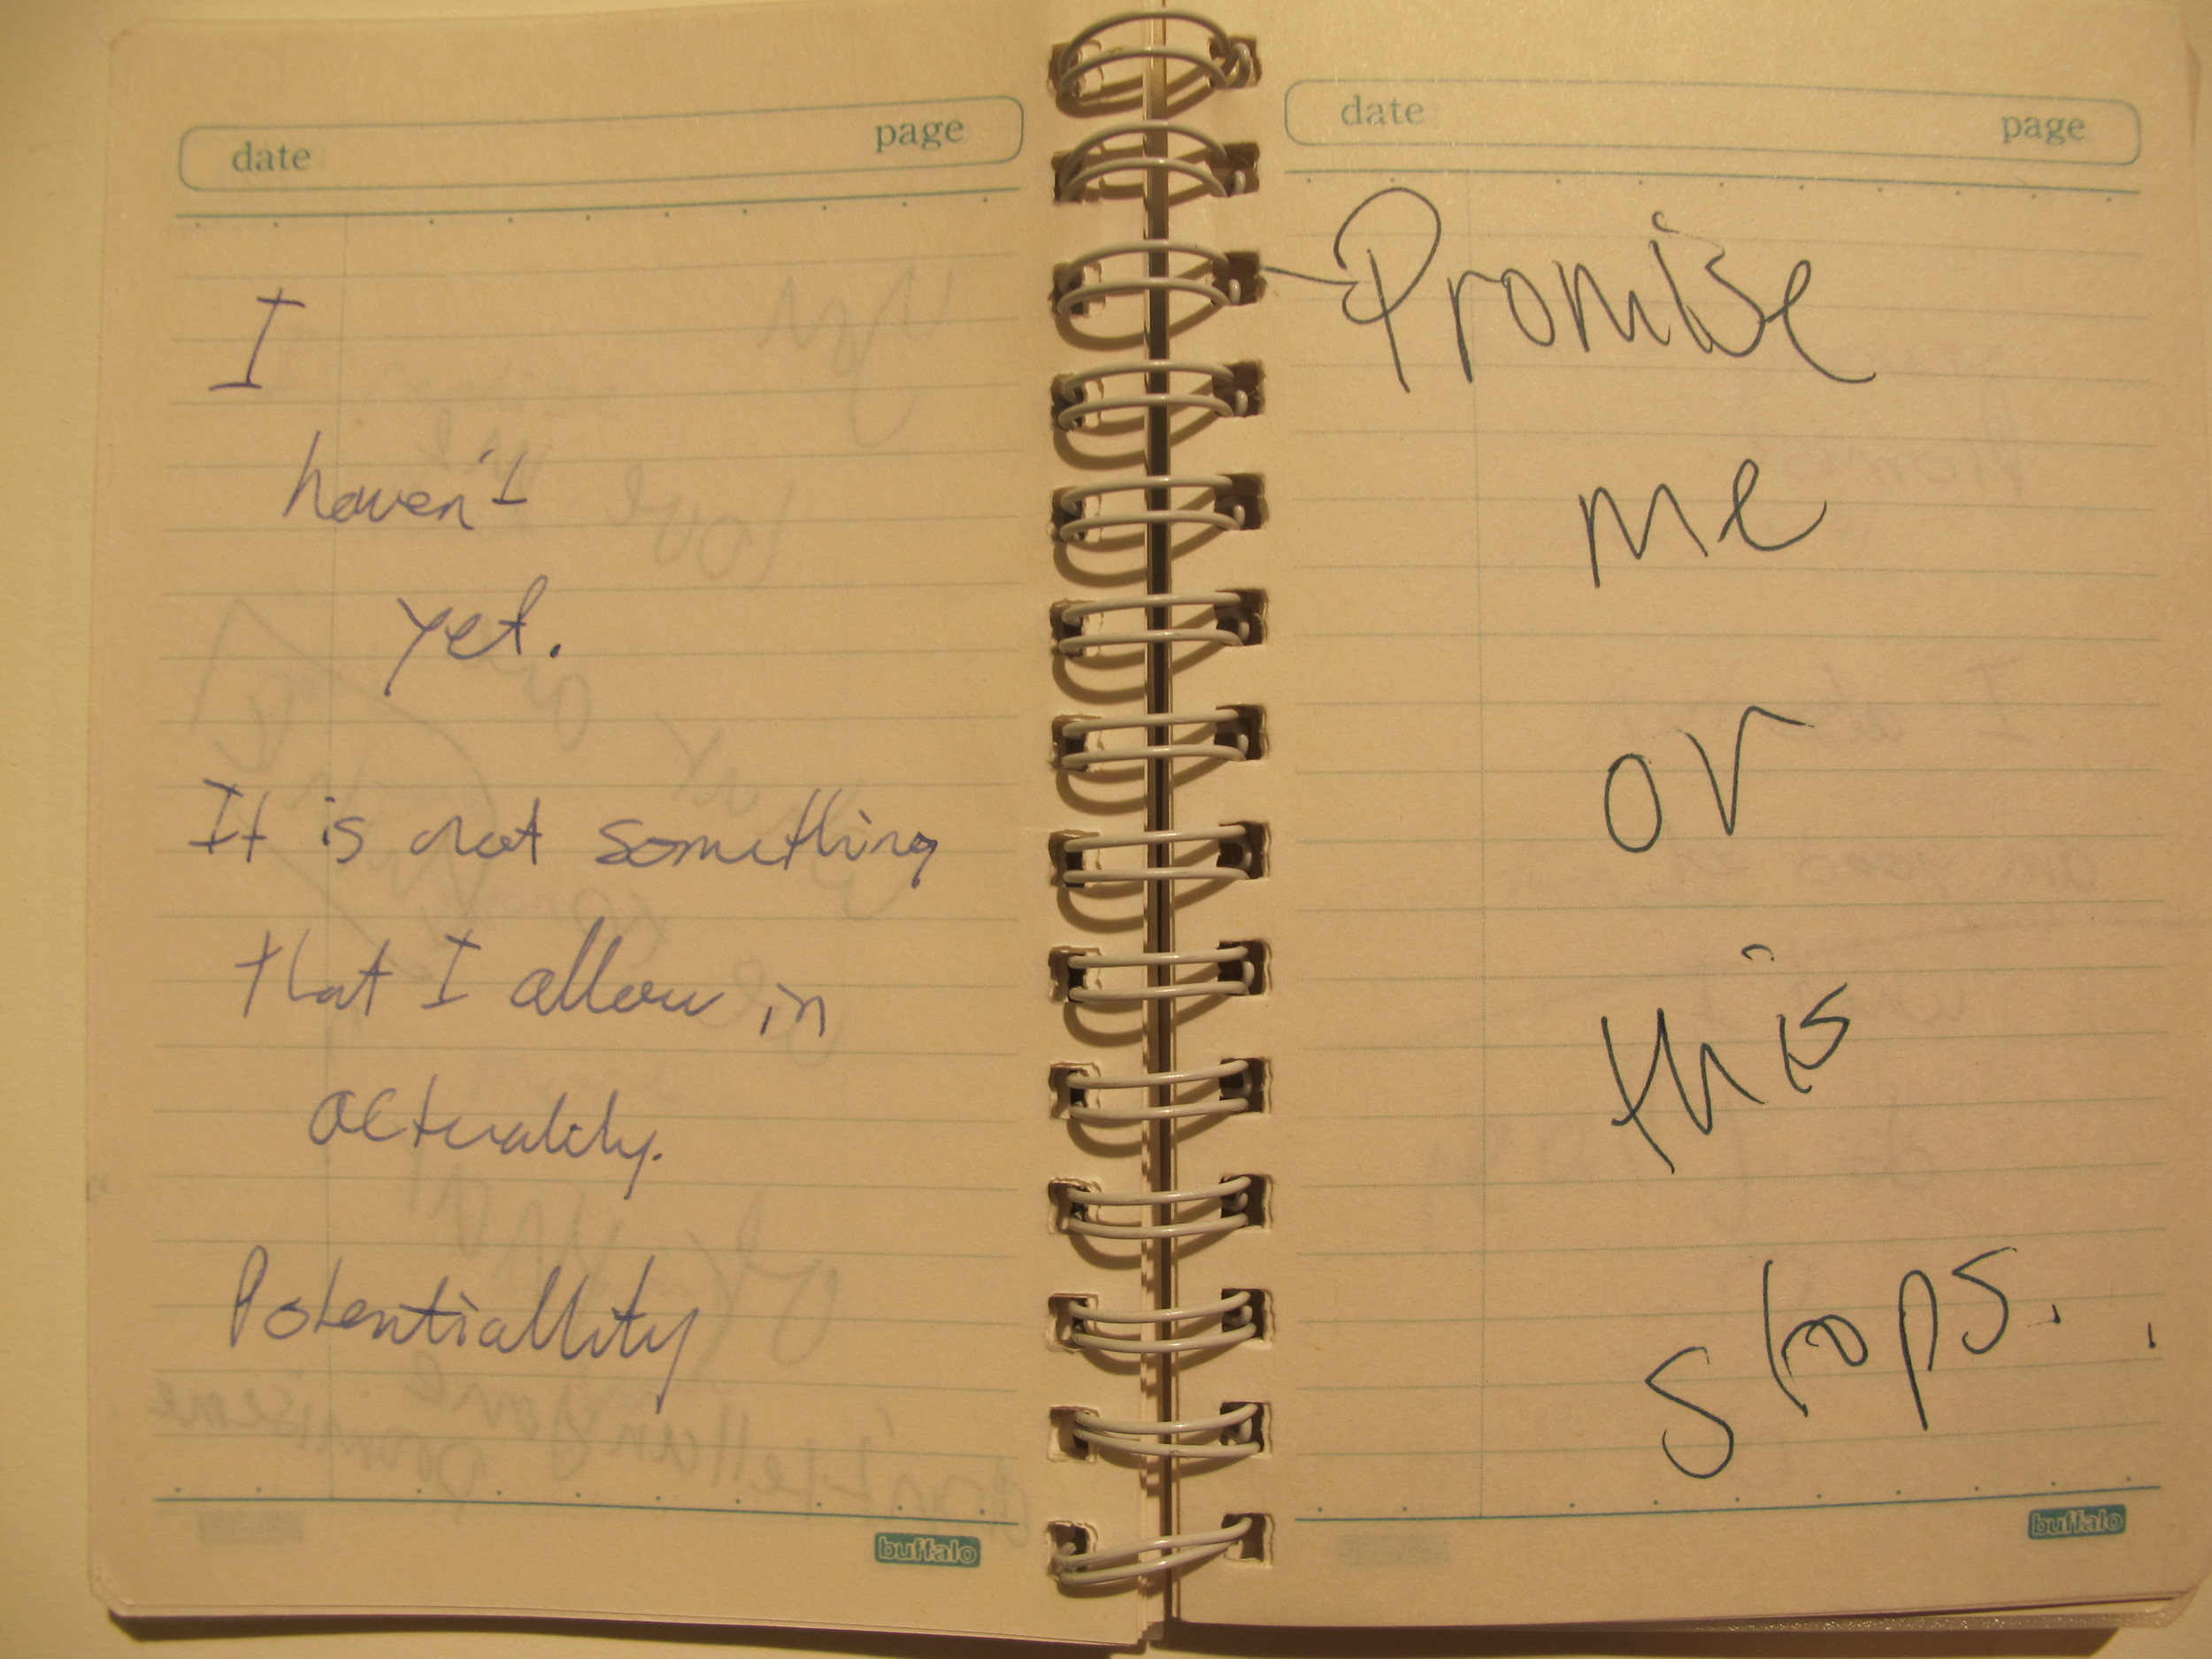 date page
I
haven't
yet.
It is not something
that I allow in
actuality.
Potentiallity
buffalo
date page
Promise
me
or
this
stops..
buffalo